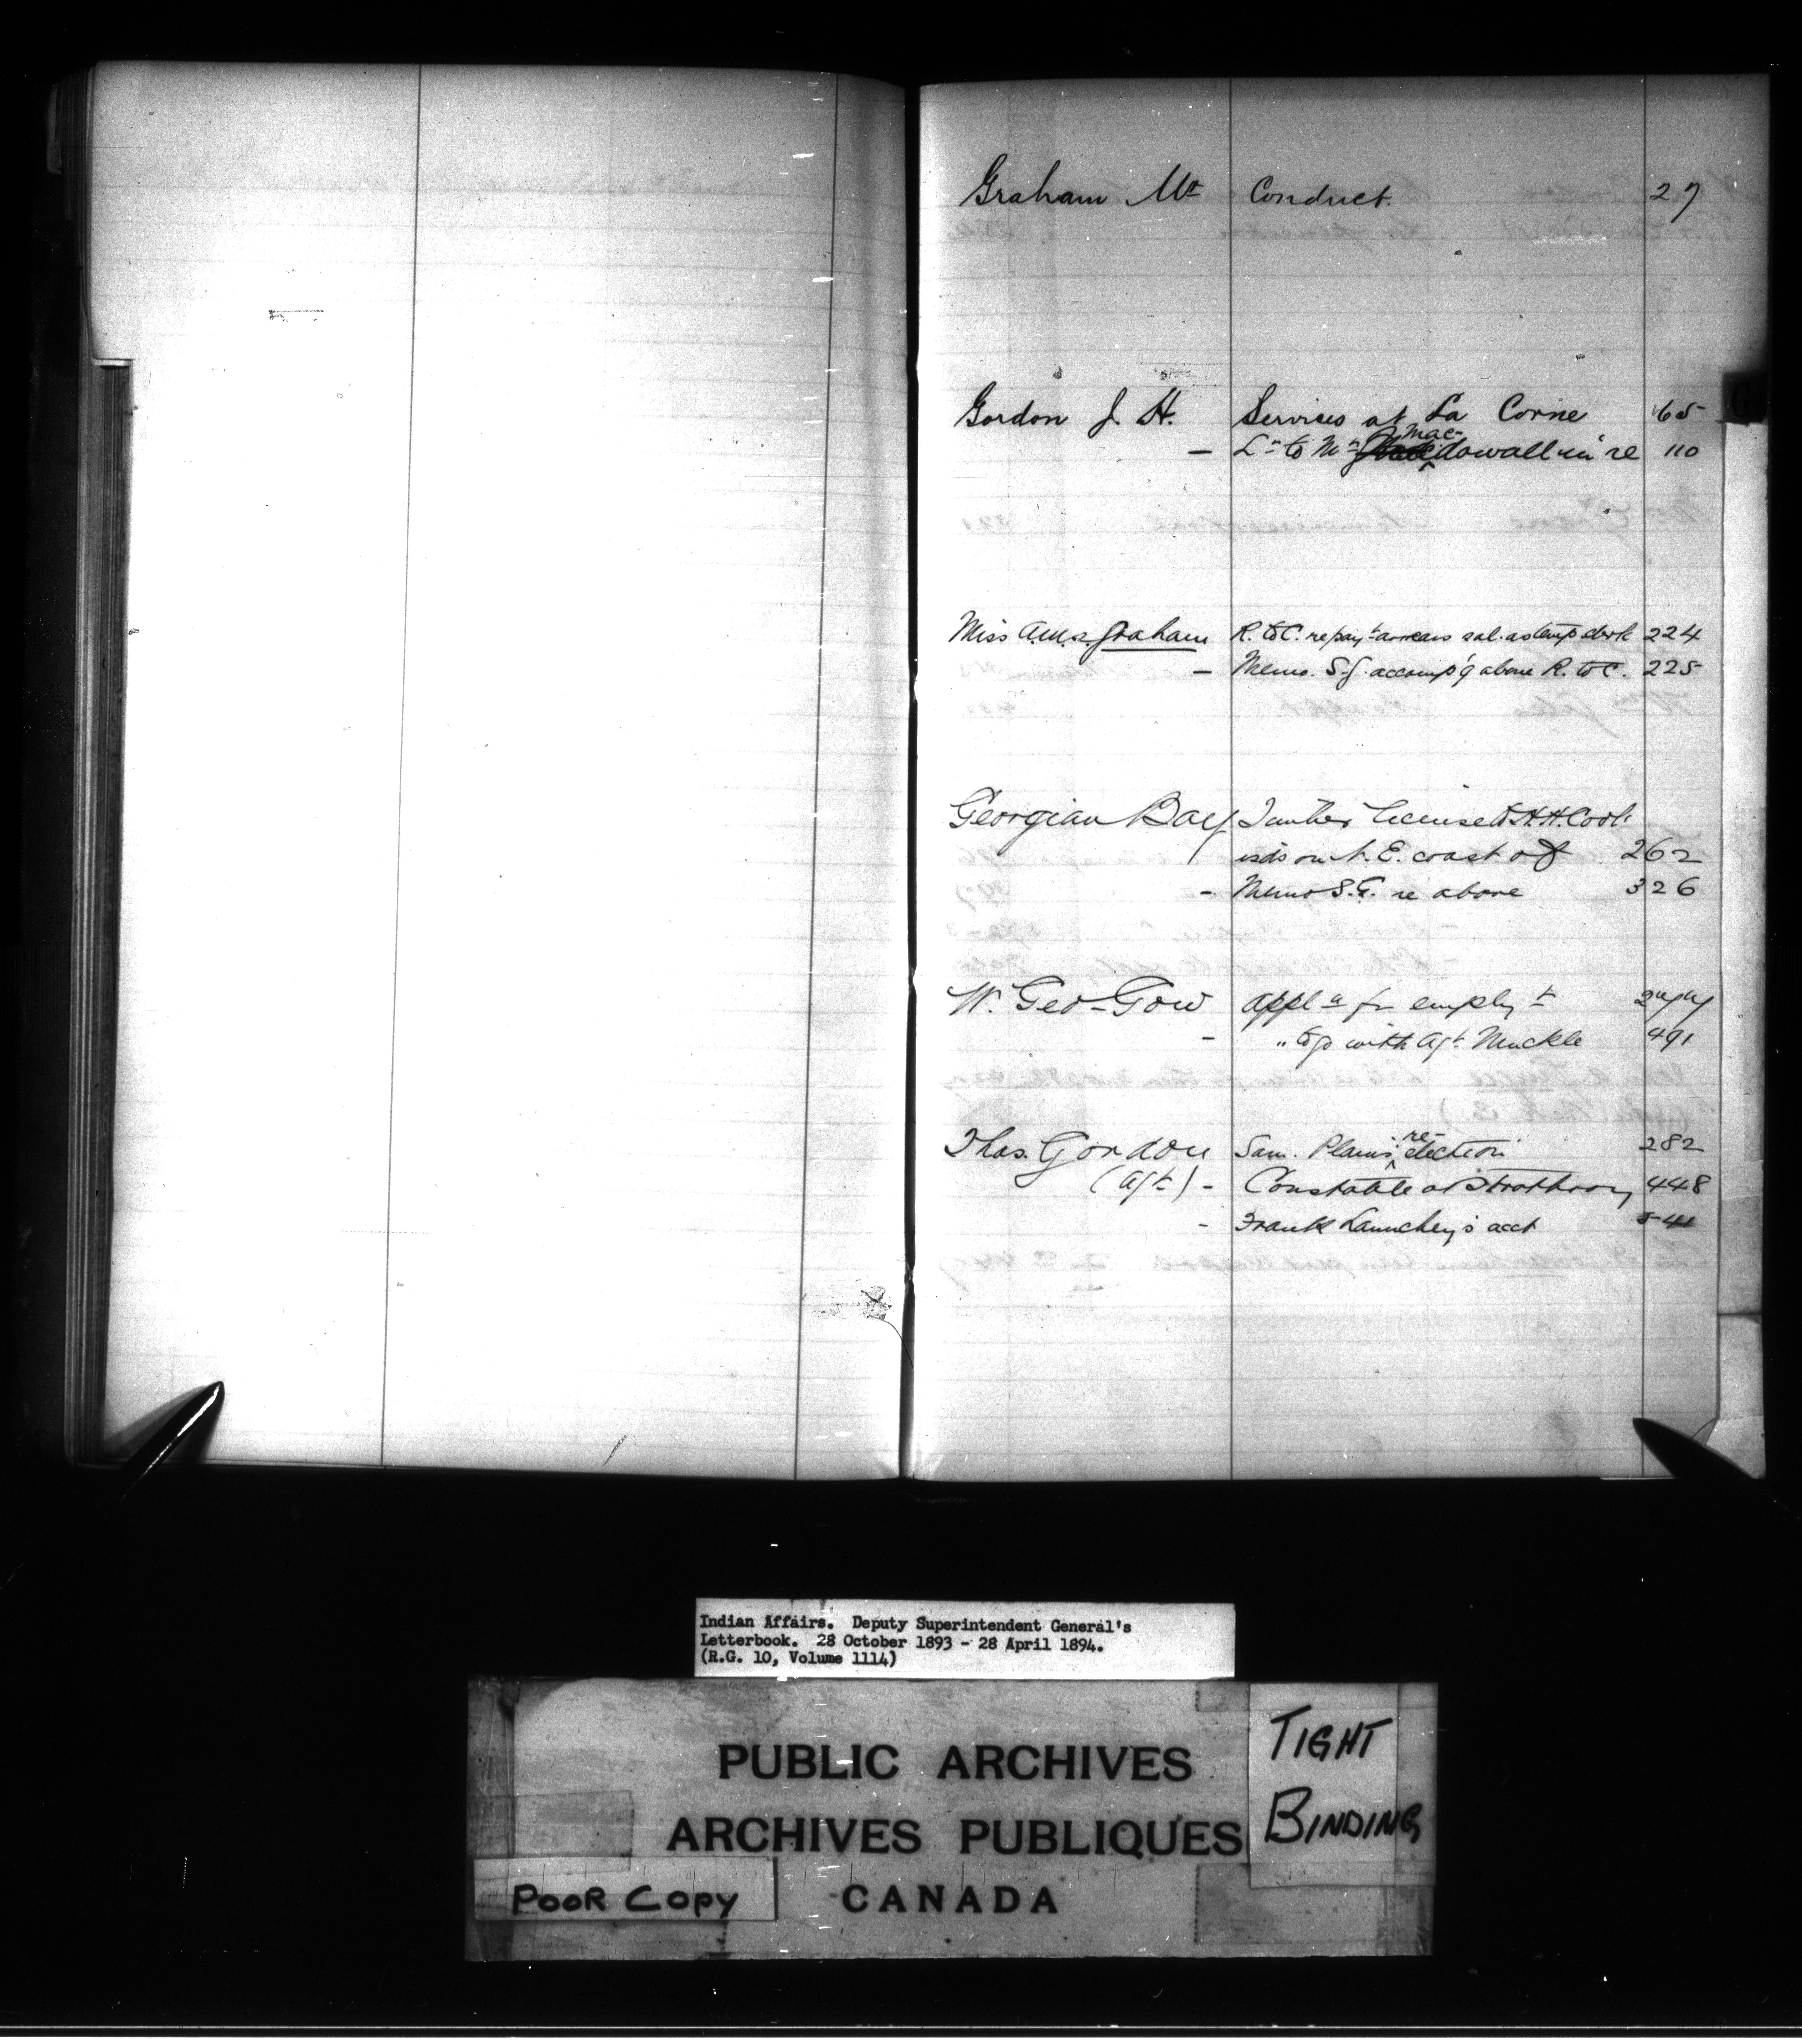 Graham Mr Conduct. 27
Gordon J. H. Services at La Corne 65
— Lr to Mr Mac-dowall in re 110
Miss A.M.S. Graham R. to C. re payt arrears sal. as temp clerk 224
— Memo. S.G. accomp'g above R. to C. 225
Georgian Bay Timber license to H.H. Cook
isds on N. E. coast of 262
- Memo S.G. re above 326
W. Geo- Gow Appln for emplyt 277
- " to go with Agt. Muckle 491
Thos. Gordon Sam. Plain's re-election 282
(Agt) - Constable at Strathroy 448
- Frank Launchey's acct 541
G
Indian Affairs. Deputy Superintendent General's
Letterbook. 28 October 1893 - 28 April 1894.
(R.G. 10, Volume 1114)
PUBLIC ARCHIVES
ARCHIVES PUBLIQUES
CANADA
TIGHT
BINDING
POOR COPY